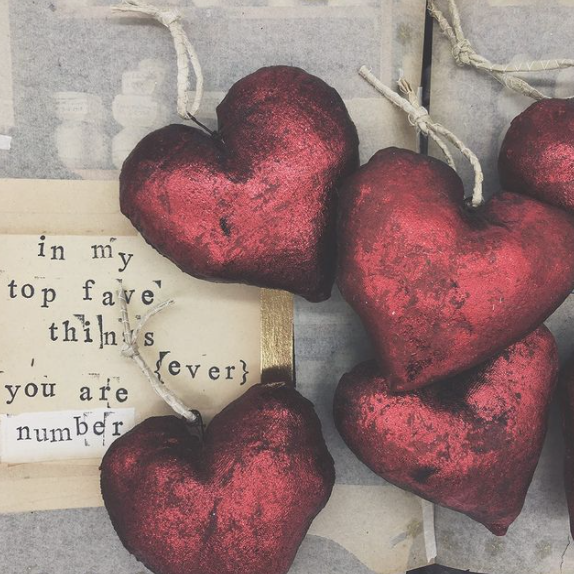 in my
top fave
things
{ever}
you are
number